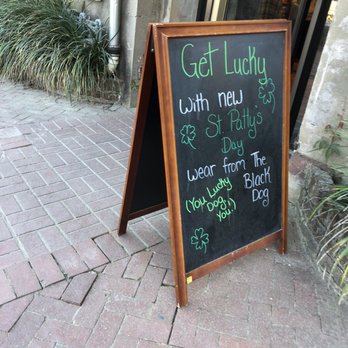 Get Lucky
with new
St. Patty's
Day
wear from The
Black
Dog
(You Lucky
Dog
You!)